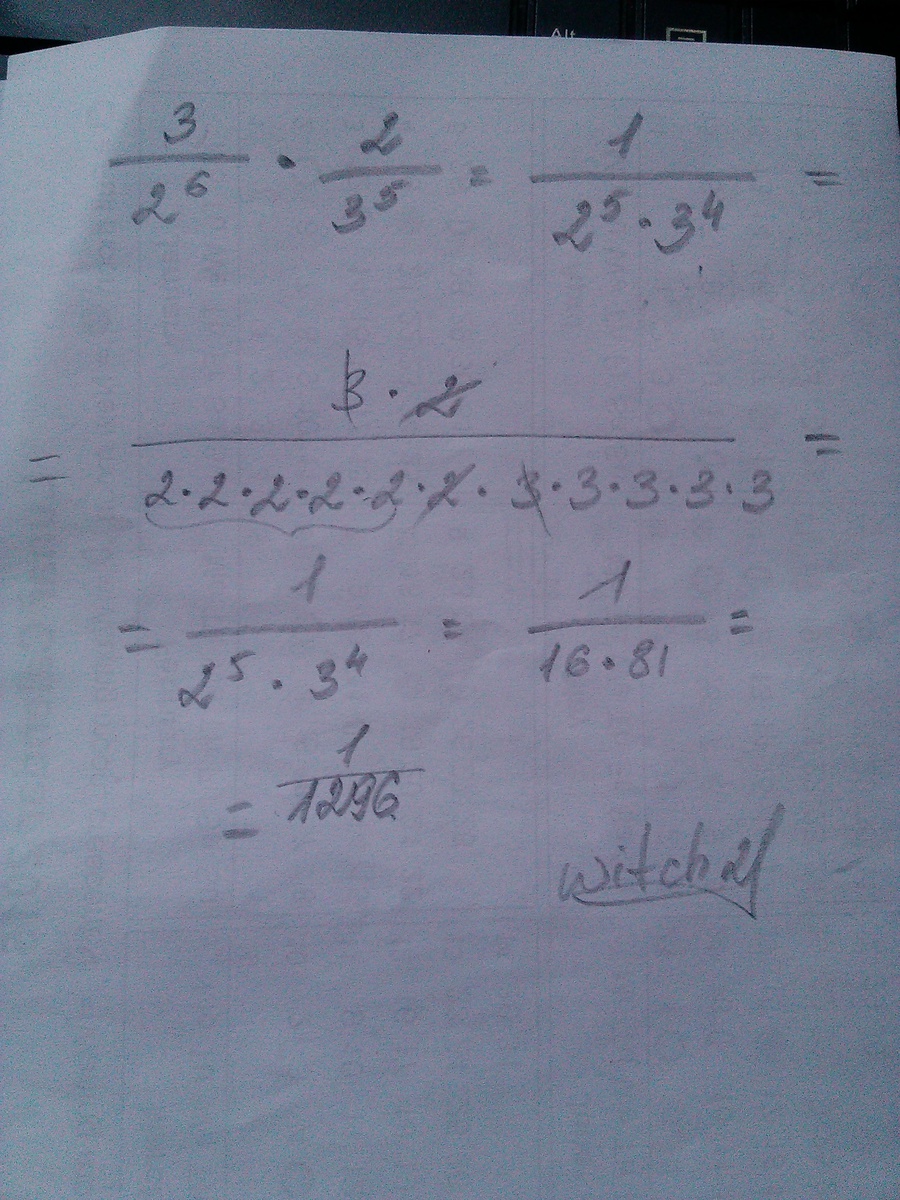 Alt
3/2⁶ · 2/3⁵ = 1/(2⁵ · 3⁴) =
= (3 · 2)/(2·2·2·2·2·2·3·3·3·3·3) =
= 1/(2⁵ · 3⁴) = 1/(16·81) =
= 1/1296
witch21